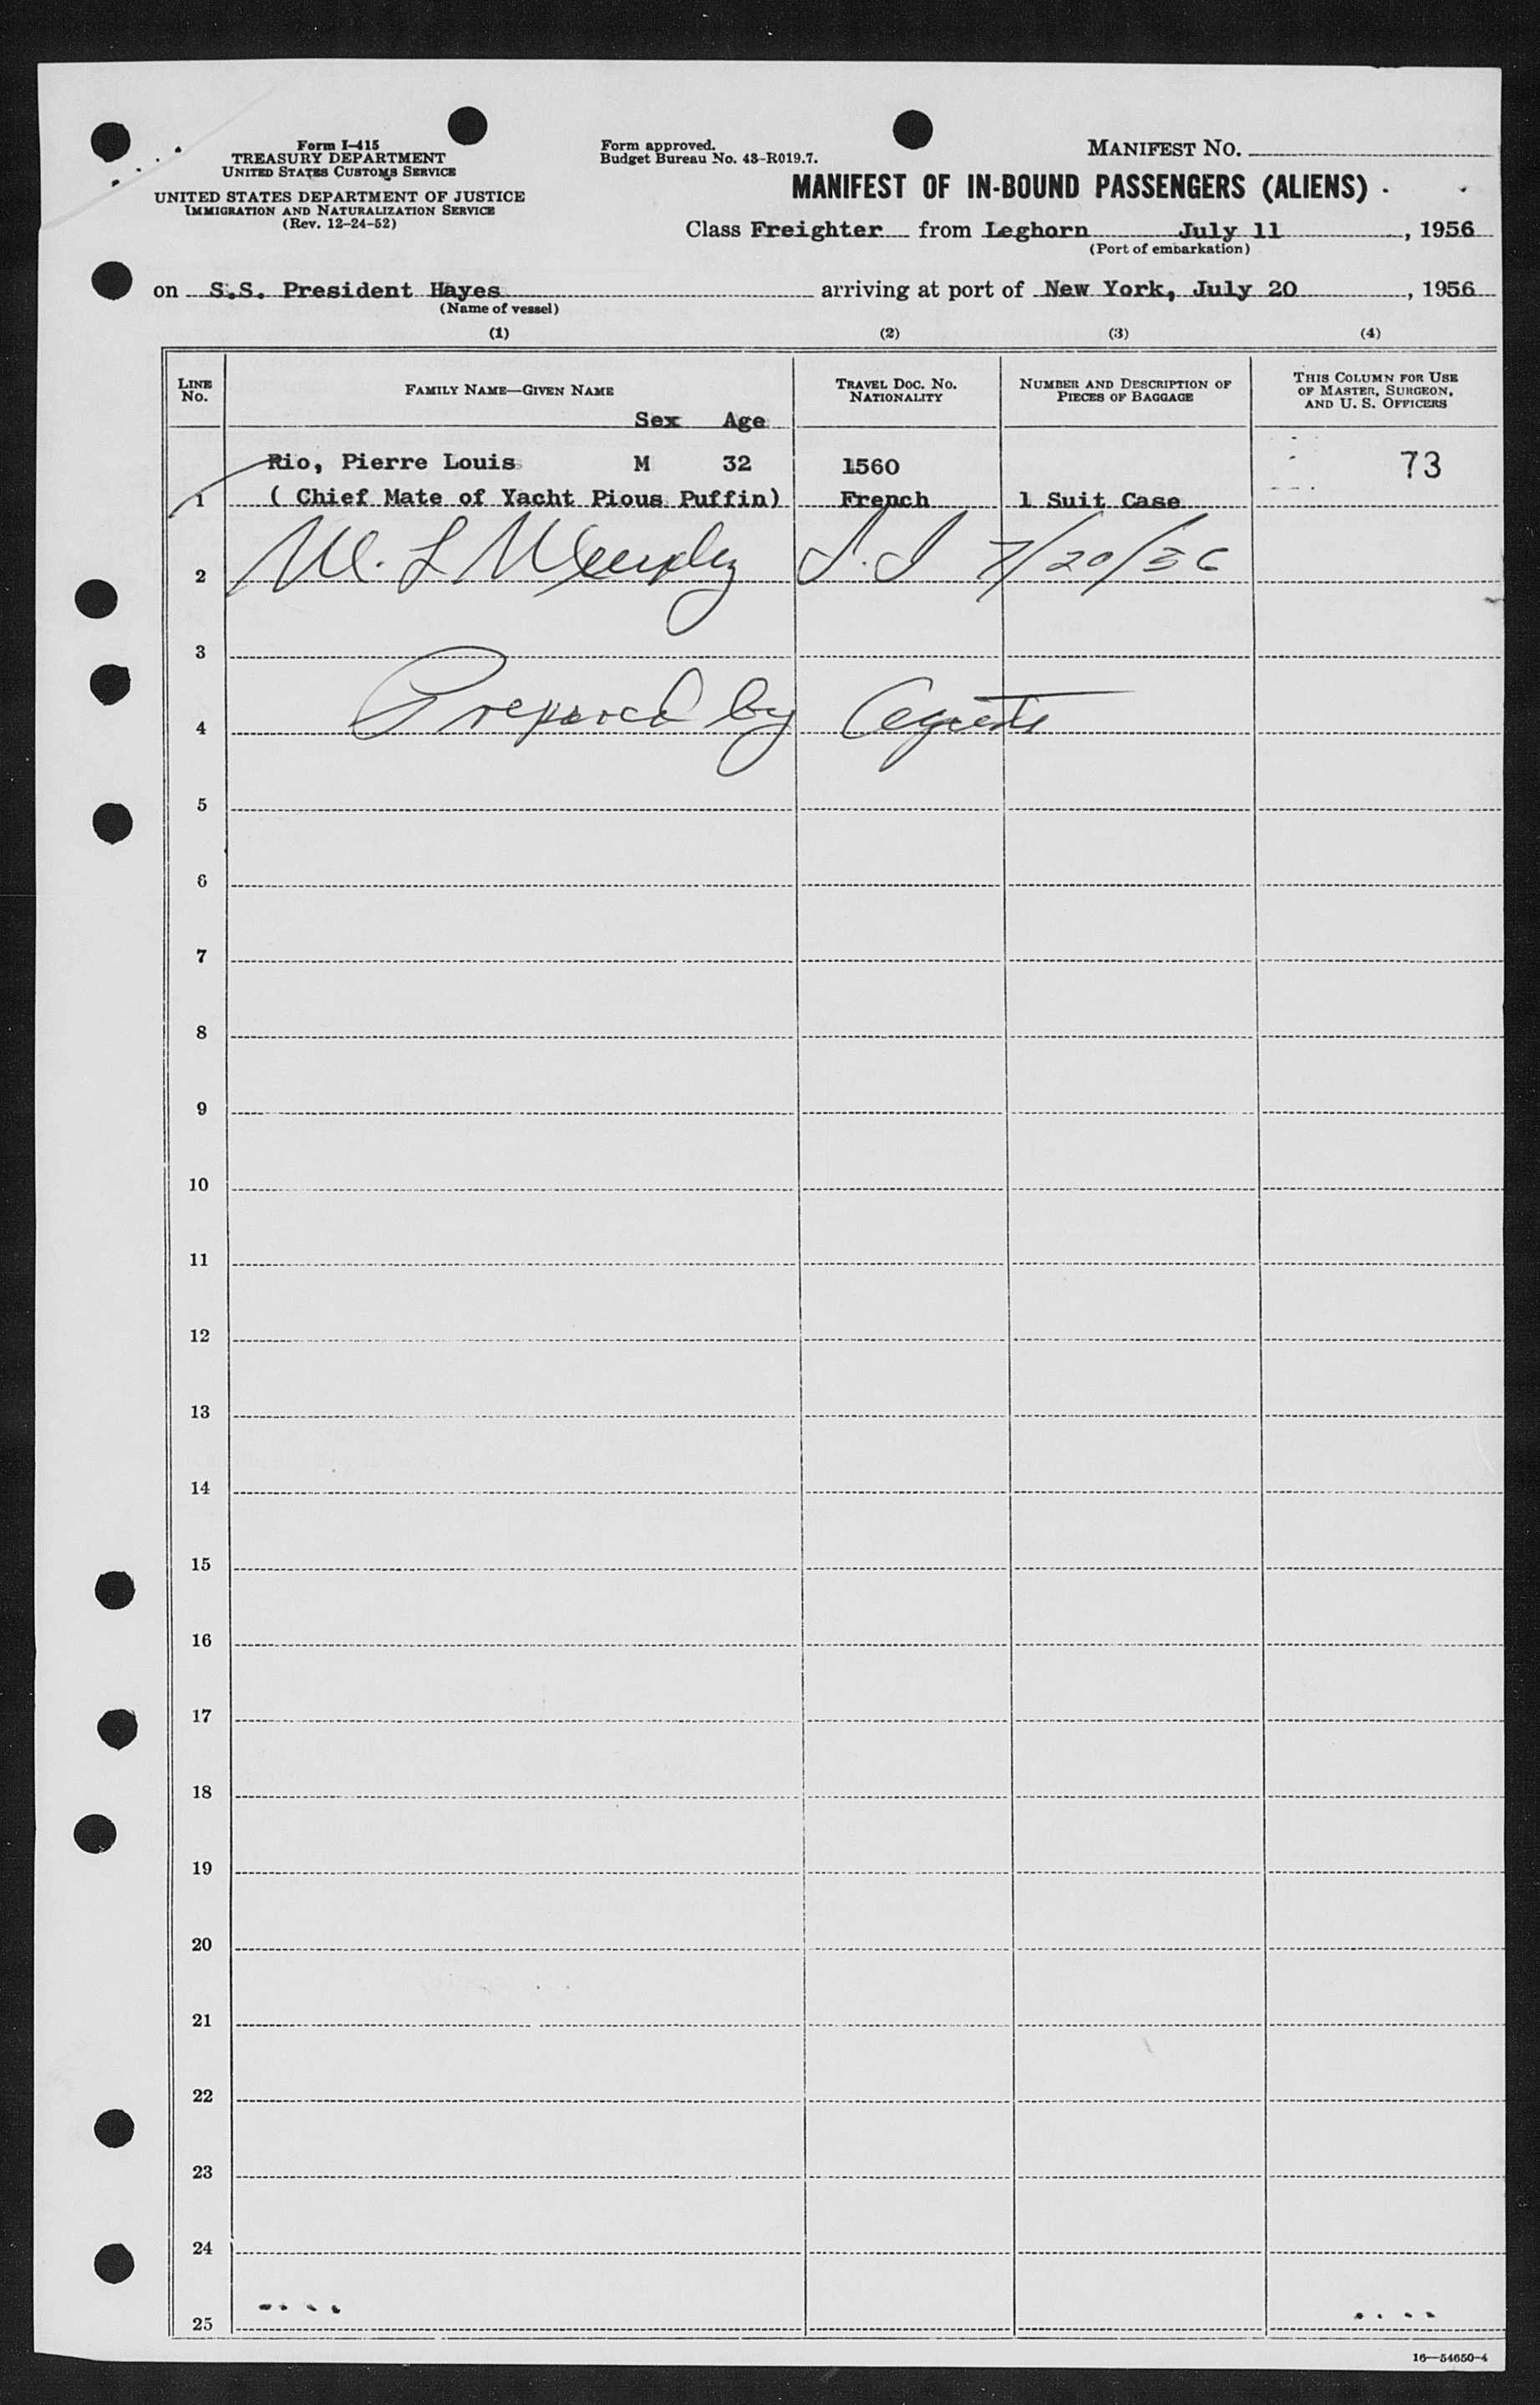 Form I-415
TREASURY DEPARTMENT
UNITED STATES CUSTOMS SERVICE
UNITED STATES DEPARTMENT OF JUSTICE
IMMIGRATION AND NATURALIZATION SERVICE
(Rev. 12-24-52)
Form approved.
Budget Bureau No. 43-R019.7.
MANIFEST NO.
MANIFEST OF IN-BOUND PASSENGERS (ALIENS)
Class Freighter from Leghorn July 11, 1956
(Port of embarkation)
on S.S. President Hayes arriving at port of New York, July 20, 1956
(Name of vessel)
(1) (2) (3) (4)
LINE NO.
FAMILY NAME—GIVEN NAME
Sex Age
TRAVEL DOC. NO.
NATIONALITY
NUMBER AND DESCRIPTION OF
PIECES OF BAGGAGE
THIS COLUMN FOR USE
OF MASTER, SURGEON,
AND U. S. OFFICERS
Rio, Pierre Louis M 32 1560 73
1 ( Chief Mate of Yacht Pious Puffin) French 1 Suit Case
2 M. L Murphy I.I 7/20/56
3
4 Prepared by Agents
5
6
7
8
9
10
11
12
13
14
15
16
17
18
19
20
21
22
23
24
25
16—54650-4